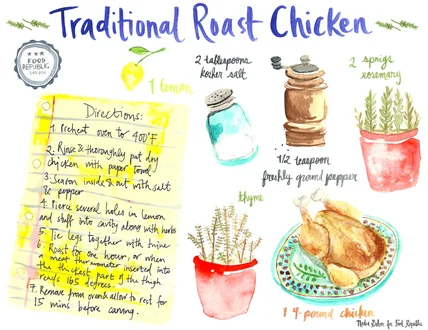 Traditional Roast Chicken
FOOD
REPUBLIC
1 lemon
2 tablespoons
kosher salt
2 sprigs
rosemary
1/2 teaspoon
freshly ground pepper
thyme
Directions:
1. Preheat oven to 400°F
2. Rinse & thoroughly pat dry
chicken with paper towel
3. Season inside & out with salt
& pepper
4. Pierce several holes in lemon
and stuff into cavity along with herbs
5. Tie legs together with twine
6. Roast for one hour, or when
a meat thermometer inserted into
the thickest part of the thigh
reads 165 degrees.
7. Remove from oven & allow to rest for
15 mins before carving.
1 4-pound chicken
for Food Republic